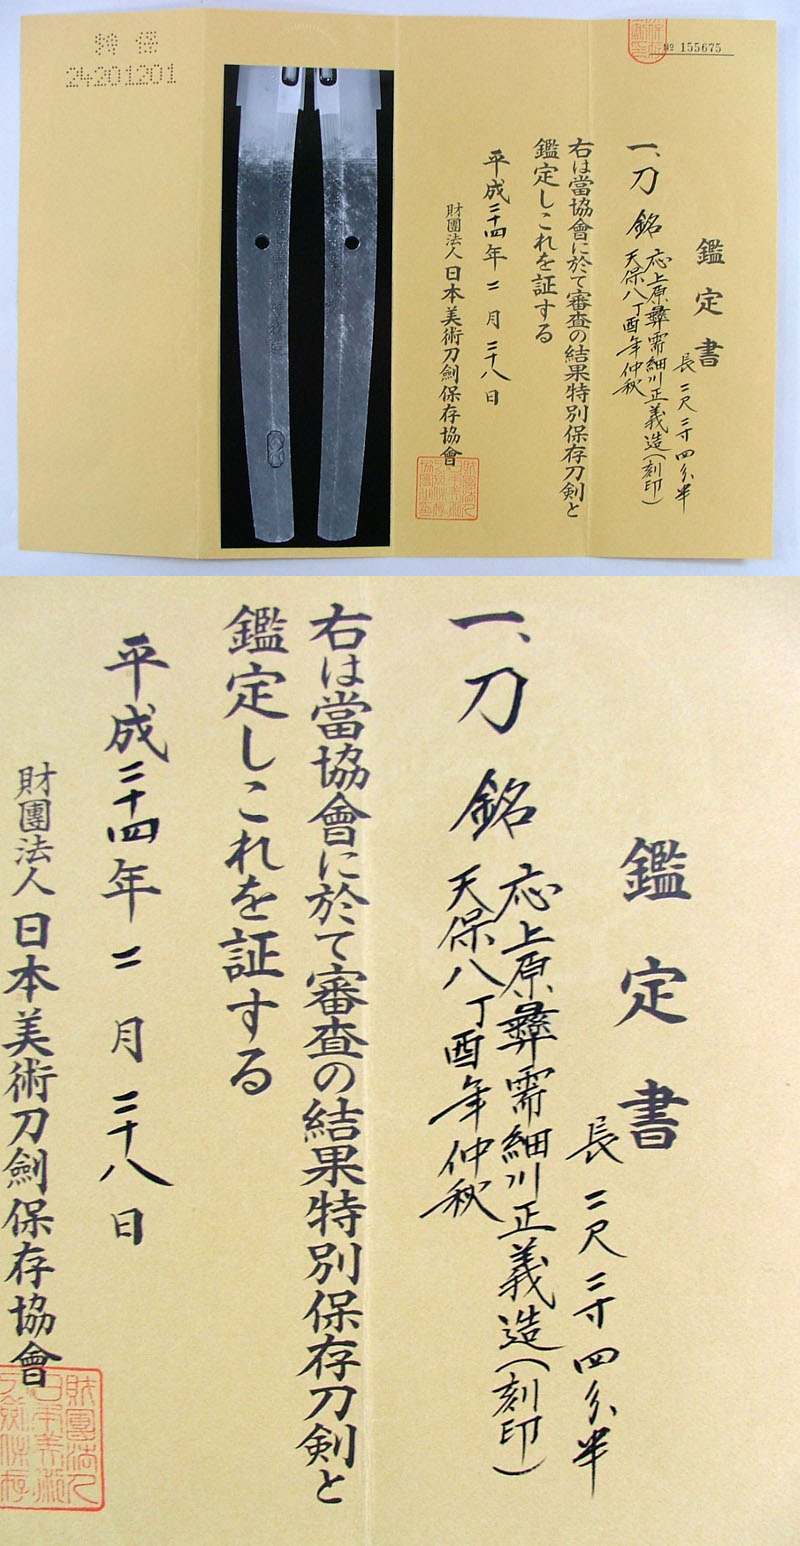 特保
24201201
№ 155675
鑑定書
長二尺二寸四分半
一、刀 銘
応上原彝需細川正義造(刻印)
天保八丁酉年仲秋
右は當協會に於て審査の結果特別保存刀剣と
鑑定しこれを証する
平成二十四年二月二十八日
財團法人日本美術刀劍保存協會
鑑定書
長二尺二寸四分半
一、刀 銘
応上原彝需細川正義造(刻印)
天保八丁酉年仲秋
右は當協會に於て審査の結果特別保存刀剣と
鑑定しこれを証する
平成二十四年二月二十八日
財團法人日本美術刀劍保存協會